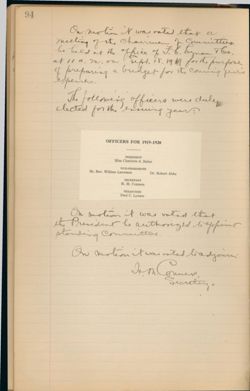 94
On motion it was voted that a
meeting of the Chairmen of Committees
be held at the office of F. C. Lyman & Co.
at 11 a.m. on Sept. 18. 1919 for the purpose
of preparing a budget for the coming year's
expenses.
The following officers were duly
elected for the ensuing year:
OFFICERS FOR 1919-1920
PRESIDENT
Miss Charlotte
VICE-PRESIDENTS
Rt. Rev. William Lawrence Dr. Robert
SECRETARY
TREASURER
On motion it was voted that
the President be authorized to appoint
standing Committees.
On motion it was voted to adjourn
Secretary.